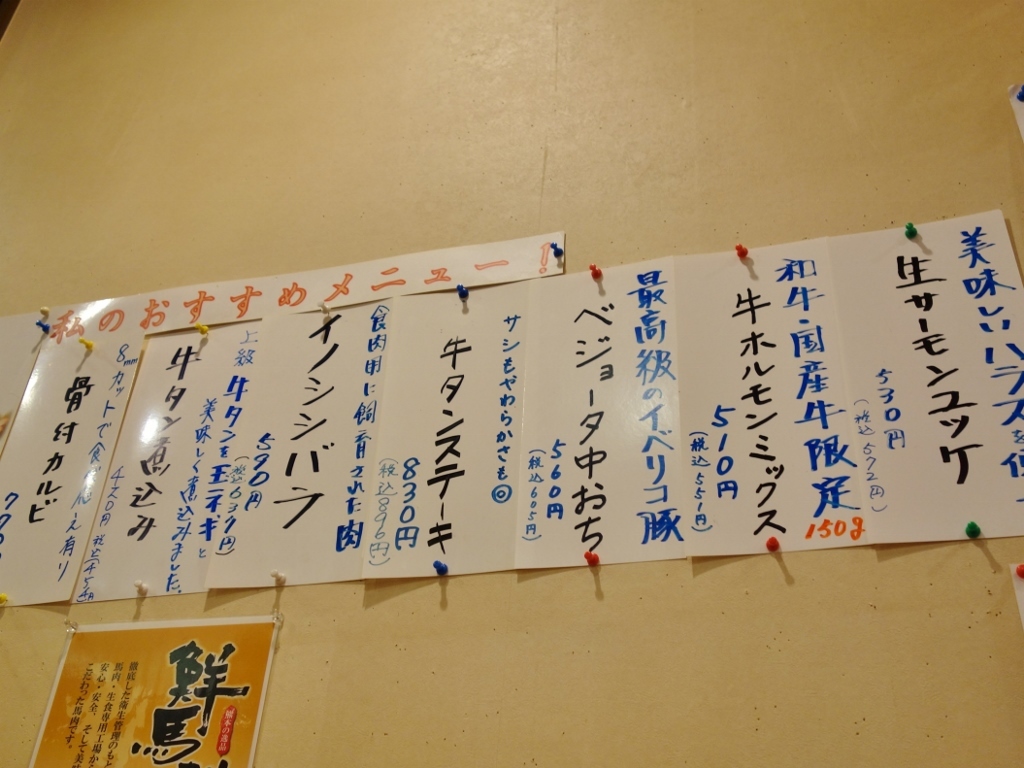 私のおすすめメニュー!
美味しいハラスを使
生サーモンユッケ
530円
(税込572円)
和牛・国産牛限定
150g
牛ホルモンミックス
510円
(税込551円)
最高級のイベリコ豚
ベジョータ中おち
560円
(税込605円)
サシもやわらかさも◎
牛タンステーキ
830円
(税込896円)
食肉用に飼育された肉
イノシシバラ
590円
(税込637円)
上級 牛タンを玉ネギと
美味しく煮込みました。
牛タン煮込み
420円
8mmカットで食べ応え有り
骨付カルビ
鮮馬
熊本の逸品
徹底した衛生管理のもと
馬肉・生食専用工場から
安心・安全、そして美味
こだわった馬肉です。